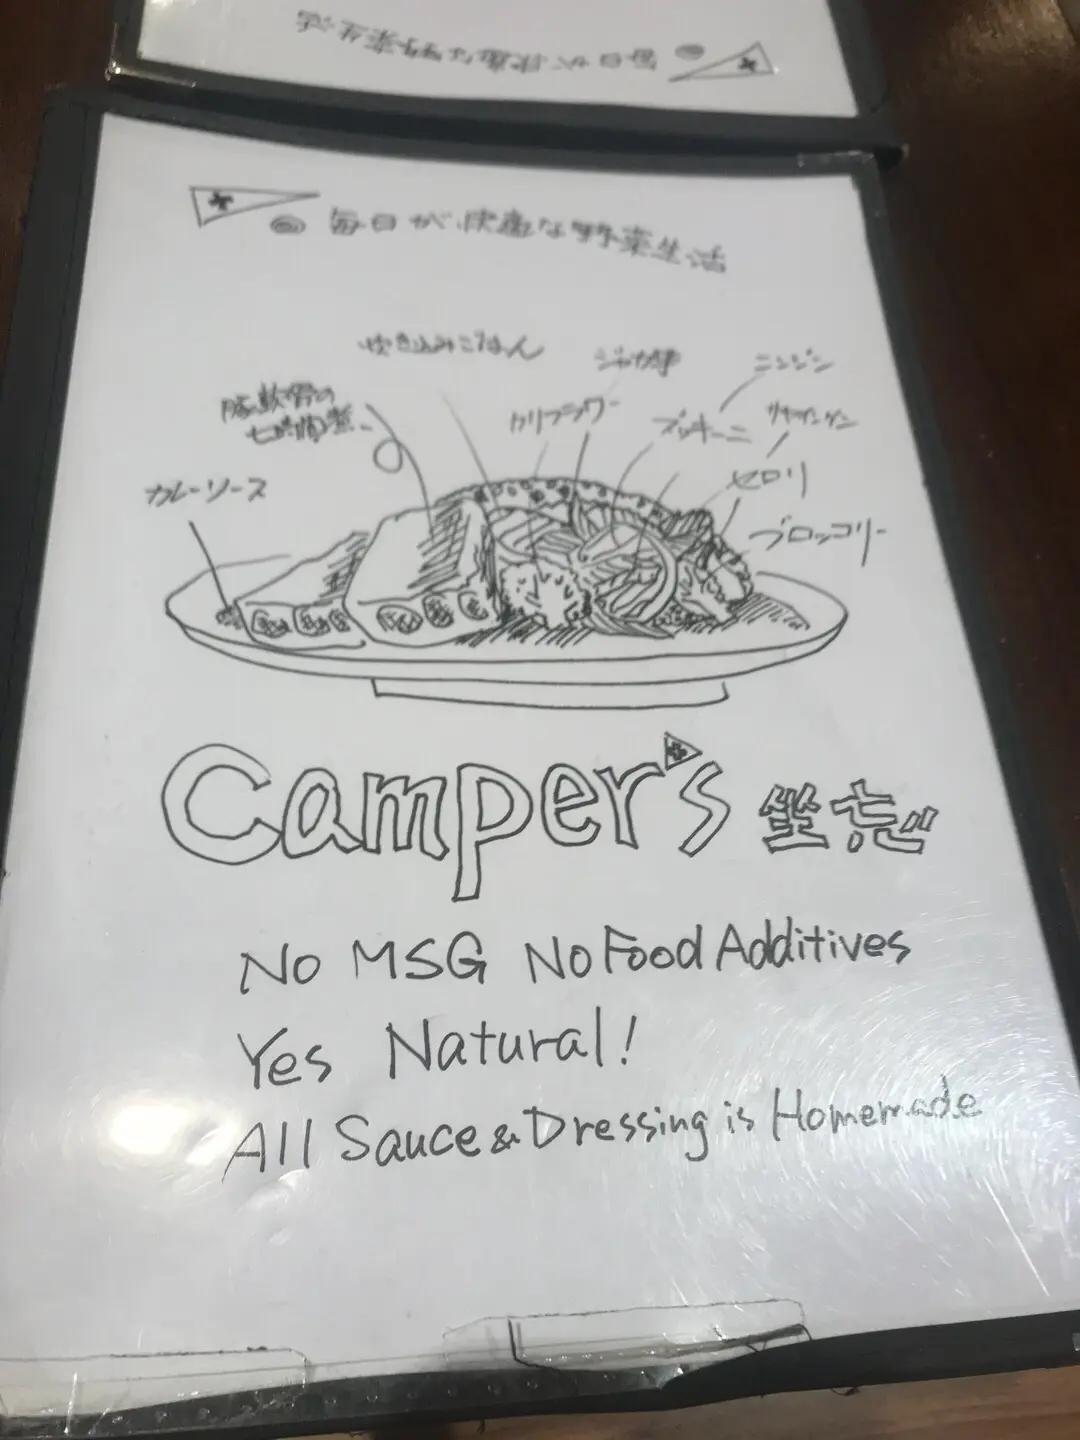 毎日が快適な野菜生活
毎日が快適な野菜生活
炊き込みごはん
ジャガ芋
ニンジン
豚軟骨の
七時間煮
カリフラワー
ズッキーニ
サヤインゲン
カレーソース
セロリ
ブロッコリー
Camper's
No MSG No Food Additives
Yes Natural!
All Sauce & Dressing is Homemade